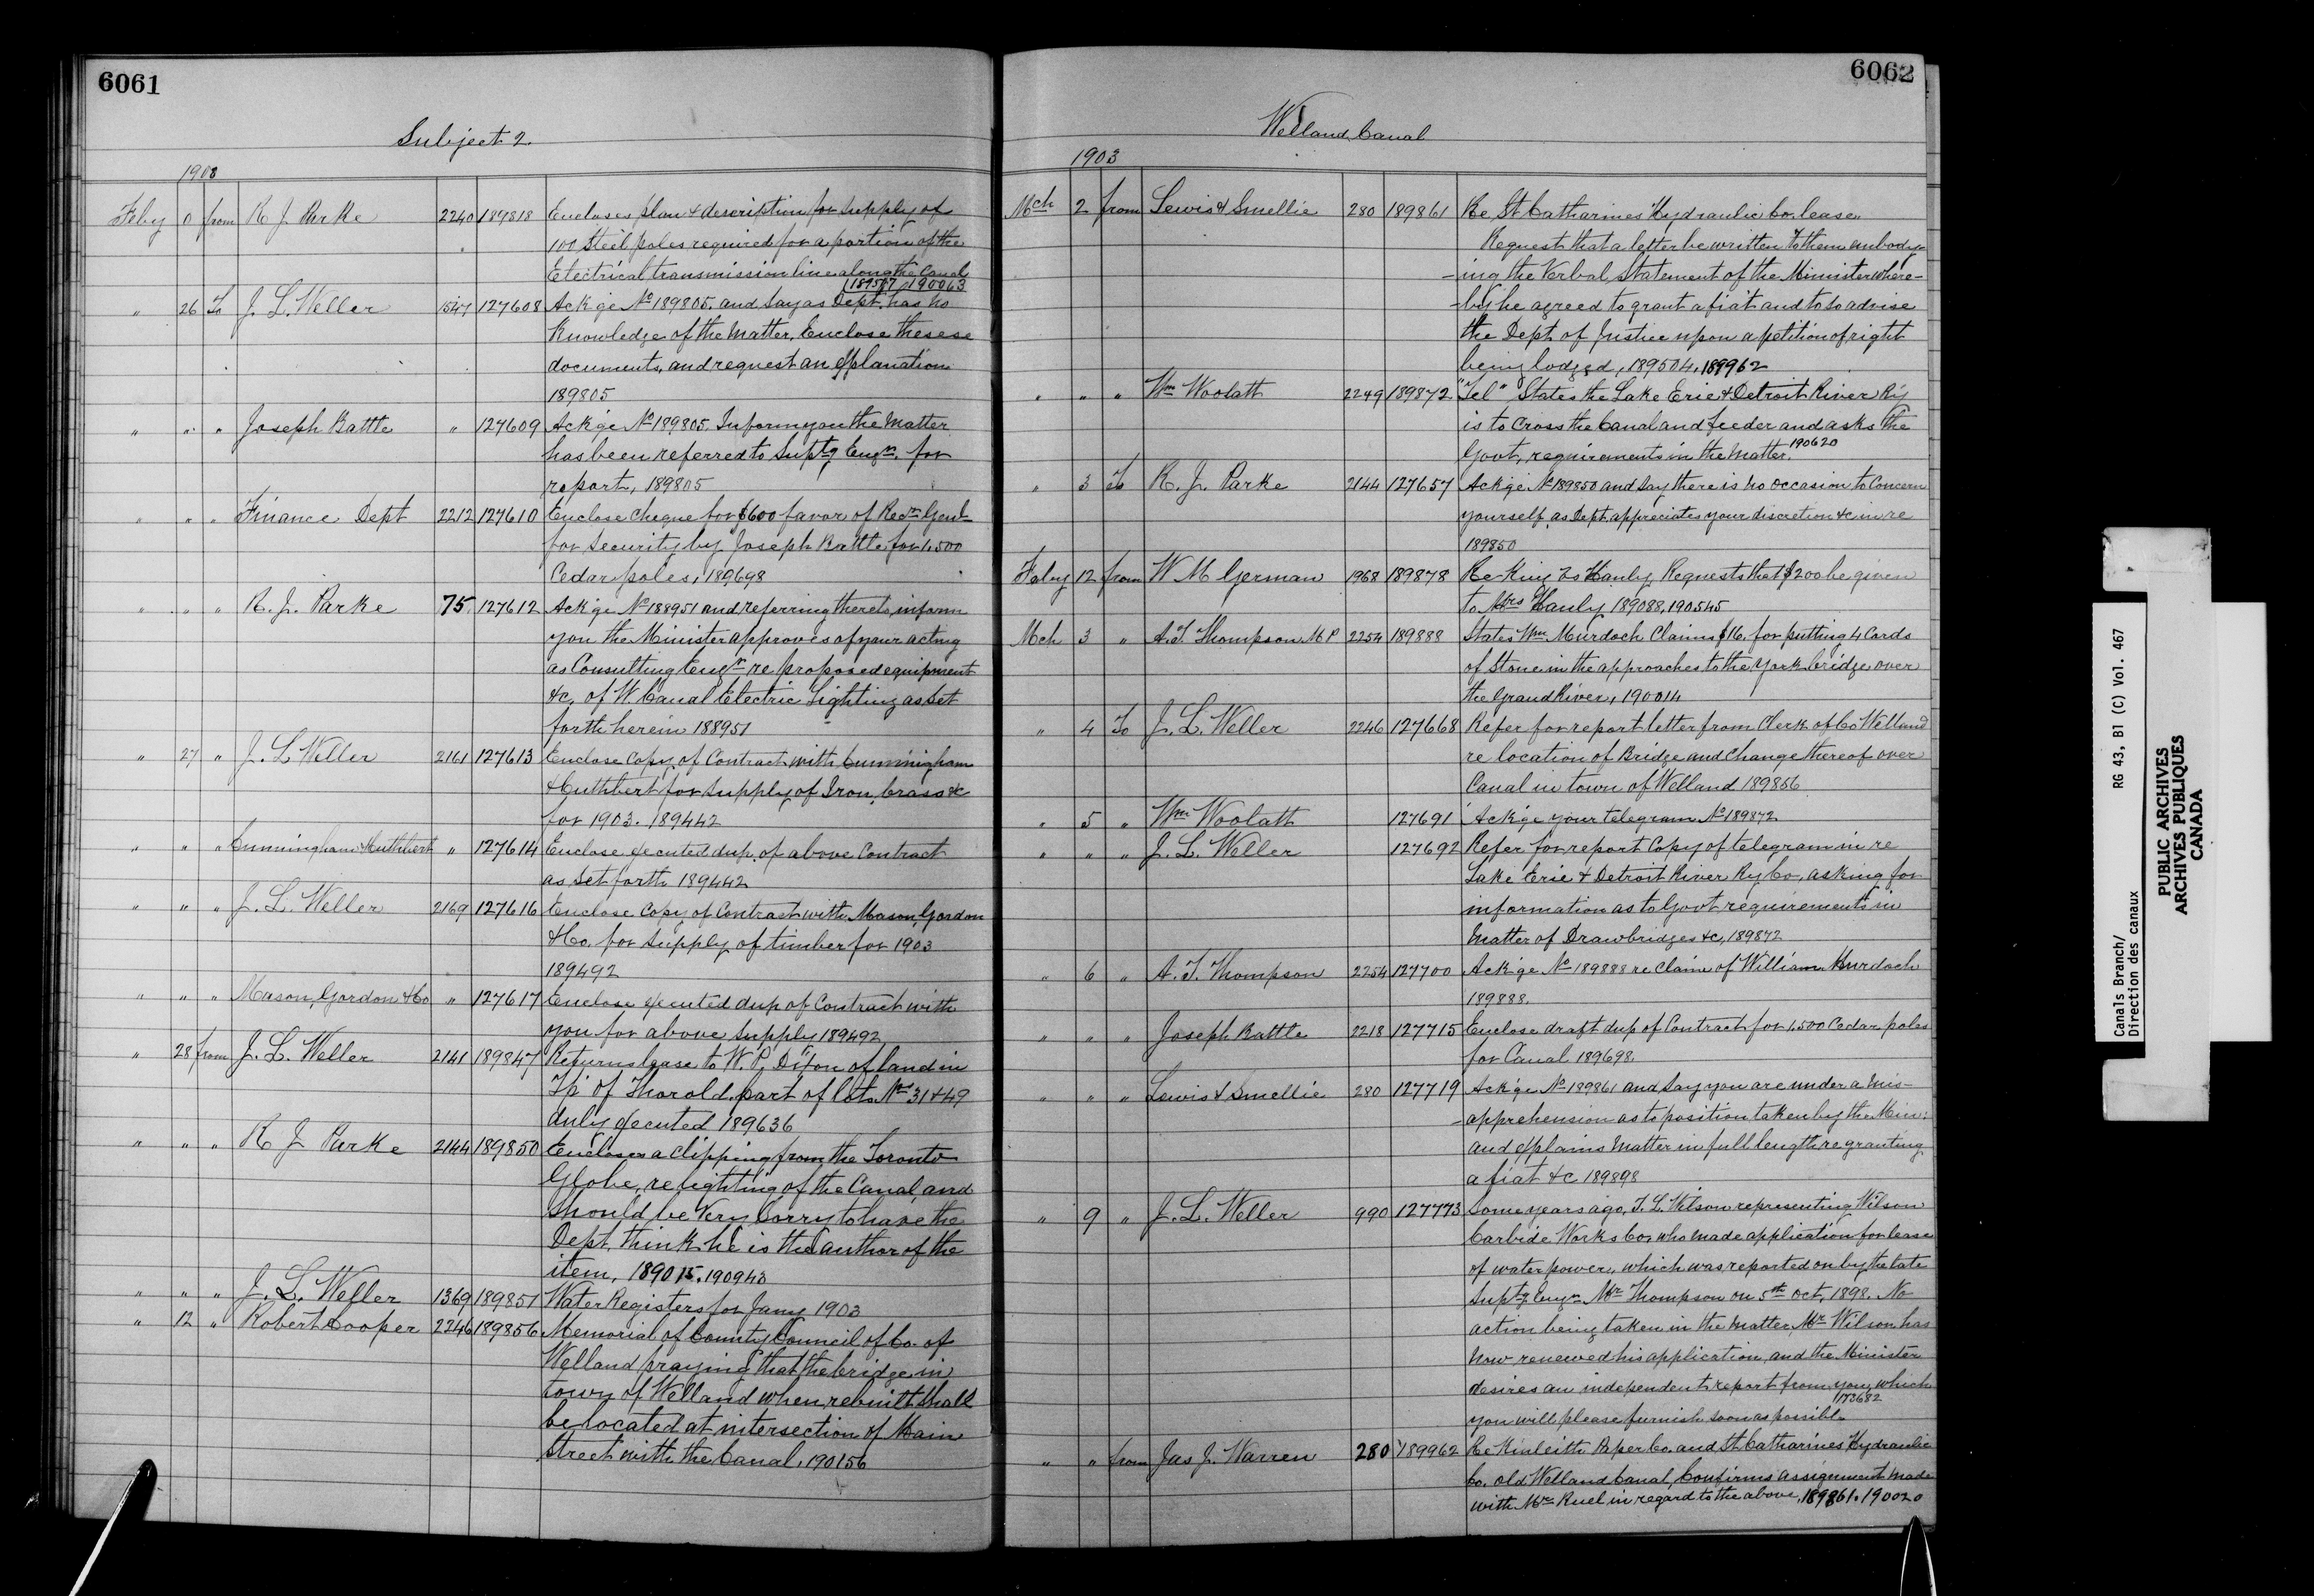 6061
Subject 2.
1903
Feby 0 from R J Parke 2240 189818 Encloses plan & description for supply of
100 Steel poles required for a portion of the
Electrical transmission line along the Canal
189577, 190063
" 26 To J. L. Weller 1547 127608 Ack'ge No 189805. and say as Dept. has no
Knowledge of the matter, Enclose thesese
documents, and request an Explanation
189805
" " " Joseph Battle " 127609 Ack'ge No 189805. Inform you the Matter
has been referred to Suptg Engr. for
report, 189805
" " " Finance Dept 2212 127610 Enclose Cheque for $600 favor of Recr Genl
for Security by Joseph Battle for 1,500
Cedar poles, 189698
" " " R. J. Parke 75 127612 Ack'ge No 188951 and referring thereto, inform
you the Minister approves of your acting
as Consulting Engr re proposed equipment
&c, of W. Canal Electric Lighting as Set
forth herein 188951
" 27 " J. L Weller 2161 127613 Enclose Copy of Contract with Cunningham
& Cuthbert for supply of Iron, brass &c
for 1903. 189442
" " " Cunningham & Cuthbert " 127614 Enclose executed dup. of above Contract
as Set forth 189442
" " " J. L. Weller 2169 127616 Enclose Copy of Contract with Mason, Gordon
& Co. for Supply of timber for 1903
189492
" " " Mason, Gordon & Co " 127617 Enclose executed dup of Contract with
you for above supply 189492
" 28 from J. L. Weller 2141 189847 Returns lease to W. P. Dixon of land in
Tp of Thorold, part of lots Nos 31 & 49
duly executed 189636
" " " R J Parke 2144 189850 Encloses a Clipping from the Toronto
Globe, re lighting of the Canal, and
Should be Very Sorry to have the
Dept, think he is the author of the
item, 189015. 190943
" " " J. L. Weller 1369 189851 Water Registers for Jany 1903
" 12 " Robert Cooper 2246 189856 Memorial of County Council of Co. of
Welland praying that the bridge in
town of Welland when rebuilt shall
be located at intersection of Main
Street with the Canal. 190156
6062
Welland Canal
1903
Mch 2 from Lewis & Smellie 280 189861 Re St Catharines Hydraulic Co. lease.
Request that a letter be written to them embody-
-ing the Verbal Statement of the Minister where-
-by he agreed to grant a fiat and to so advise
the Dept of Justice upon a petition of right
being lodged, 189504. 189962
" " " Wm Woolatt 2249 189872 "Tel" States the Lake Erie & Detroit River Ry
is to Cross the Canal and feeder and asks the
Govt, requirements in the Matter. 190620
" 3 To R. J. Parke 2144 127657 Ack'ge No 189850 and say there is no occasion to Concern
yourself, as Dept. appreciates your discretion &c in re
189850
Feby 12 from W M German 1968 189878 Re King vs Hanly Requests that $200 be given
to Mrs Hanly 189088, 190545
Mch 3 " A. T. Thompson M P 2254 189888 States Wm Murdoch Claims $16. for putting 4 Cords
of Stone in the approaches to the York bridge over
the Grand River, 190014
" 4 To J. L. Weller 2246 127668 Refer for report letter from Clerk of Co Welland
re location of Bridge and Change thereof over
Canal in town of Welland 189856
" 5 " Wm Woolatt 127691 Ack'ge your telegram No 189872
" " " J. L. Weller 127692 Refer for report Copy of telegram in re
Lake Erie & Detroit River Ry Co, asking for
information as to Govt requirements in
Matter of Drawbridges &c, 189872
" 6 " A. T. Thompson 2254 127700 Ack'ge No 189888 re Claim of William Murdoch
189888.
" " " Joseph Battle 2218 127715 Enclose draft dup of Contract for 1.500 Cedar poles
for Canal 189698.
" " " Lewis & Smellie 280 127719 Ack'ge No 189861 and say you are under a mis-
-apprehension as to position taken by the Min:
and explains Matter in full length re granting
a fiat &c 189898
" 9 " J. L. Weller 990 127773 Some years ago, T. L. Wilson representing Wilson
Carbide Works Co. who made application for lease
of water power, which was reported on by the late
Suptg Engr Mr Thompson on 5th Oct, 1898. No
action being taken in the Matter, Mr Wilson has
now renewed his application, and the Minister
desires an independent report from you, which
173682
you will please furnish soon as possible
" " from Jas J. Warren 280 189962 Re Kinleith Paper Co. and St Catharines Hydraulic
Co. old Welland Canal, Confirms assignment made
with Mr Ruel in regard to the above, 189861. 190020
Canals Branch/
Direction des canaux
RG 43, B1 (C) Vol. 467
PUBLIC ARCHIVES
ARCHIVES PUBLIQUES
CANADA